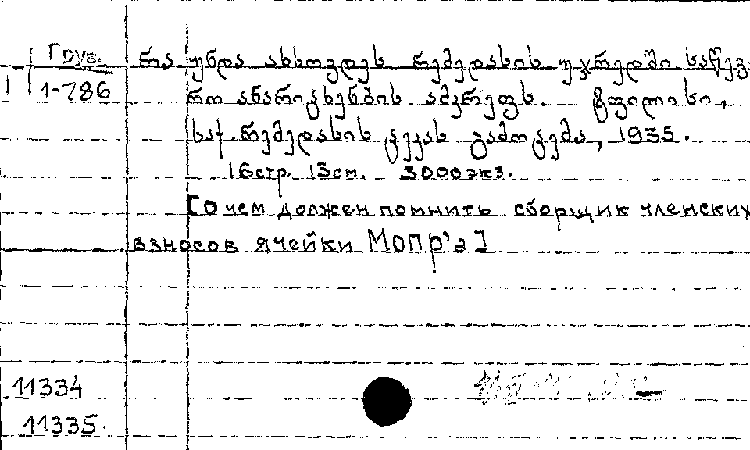 Груз.
1-786
რა უნდა ახსოვდეს რმედასის უჯრედში საწევ-
რო ანარიცხების ამკრეფს. ტფილისი,
საქ. რმედასის ცეკას გამოცემა, 1935.
16стр. 13см. 3000экз.
[О чем должен помнить сборщик членских
взносов ячейки Мопр'а]
11334
11335.